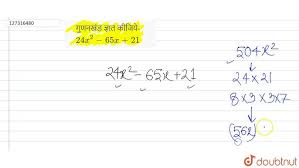 127316480
गुणनखंड ज्ञात कीजिये-
24x² − 65x + 21
24x² − 65x + 21
504x²
24 × 21
8 × 3 × 3 × 7
(56x)
doubtnut